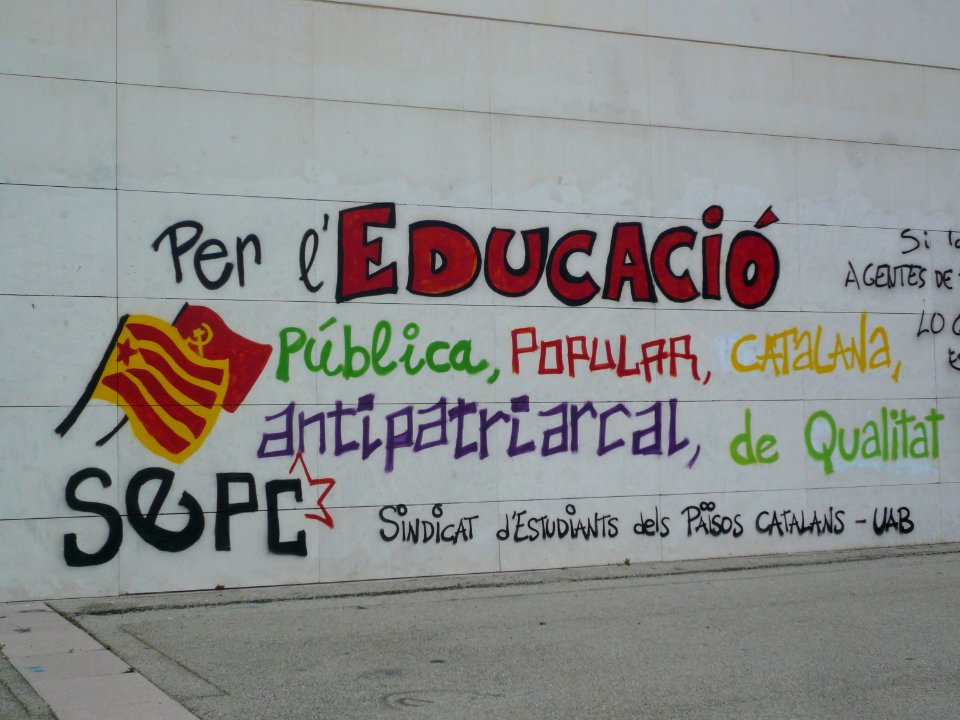 Per l'EDUCACIÓ
Pública, POPULAR, CATALANA,
antipatriarcal, de Qualitat
SePC
SINDICAT d'ESTUDIANTS dels PAÏSOS CATALANS - UAB
Si
AGENTES DE
LO